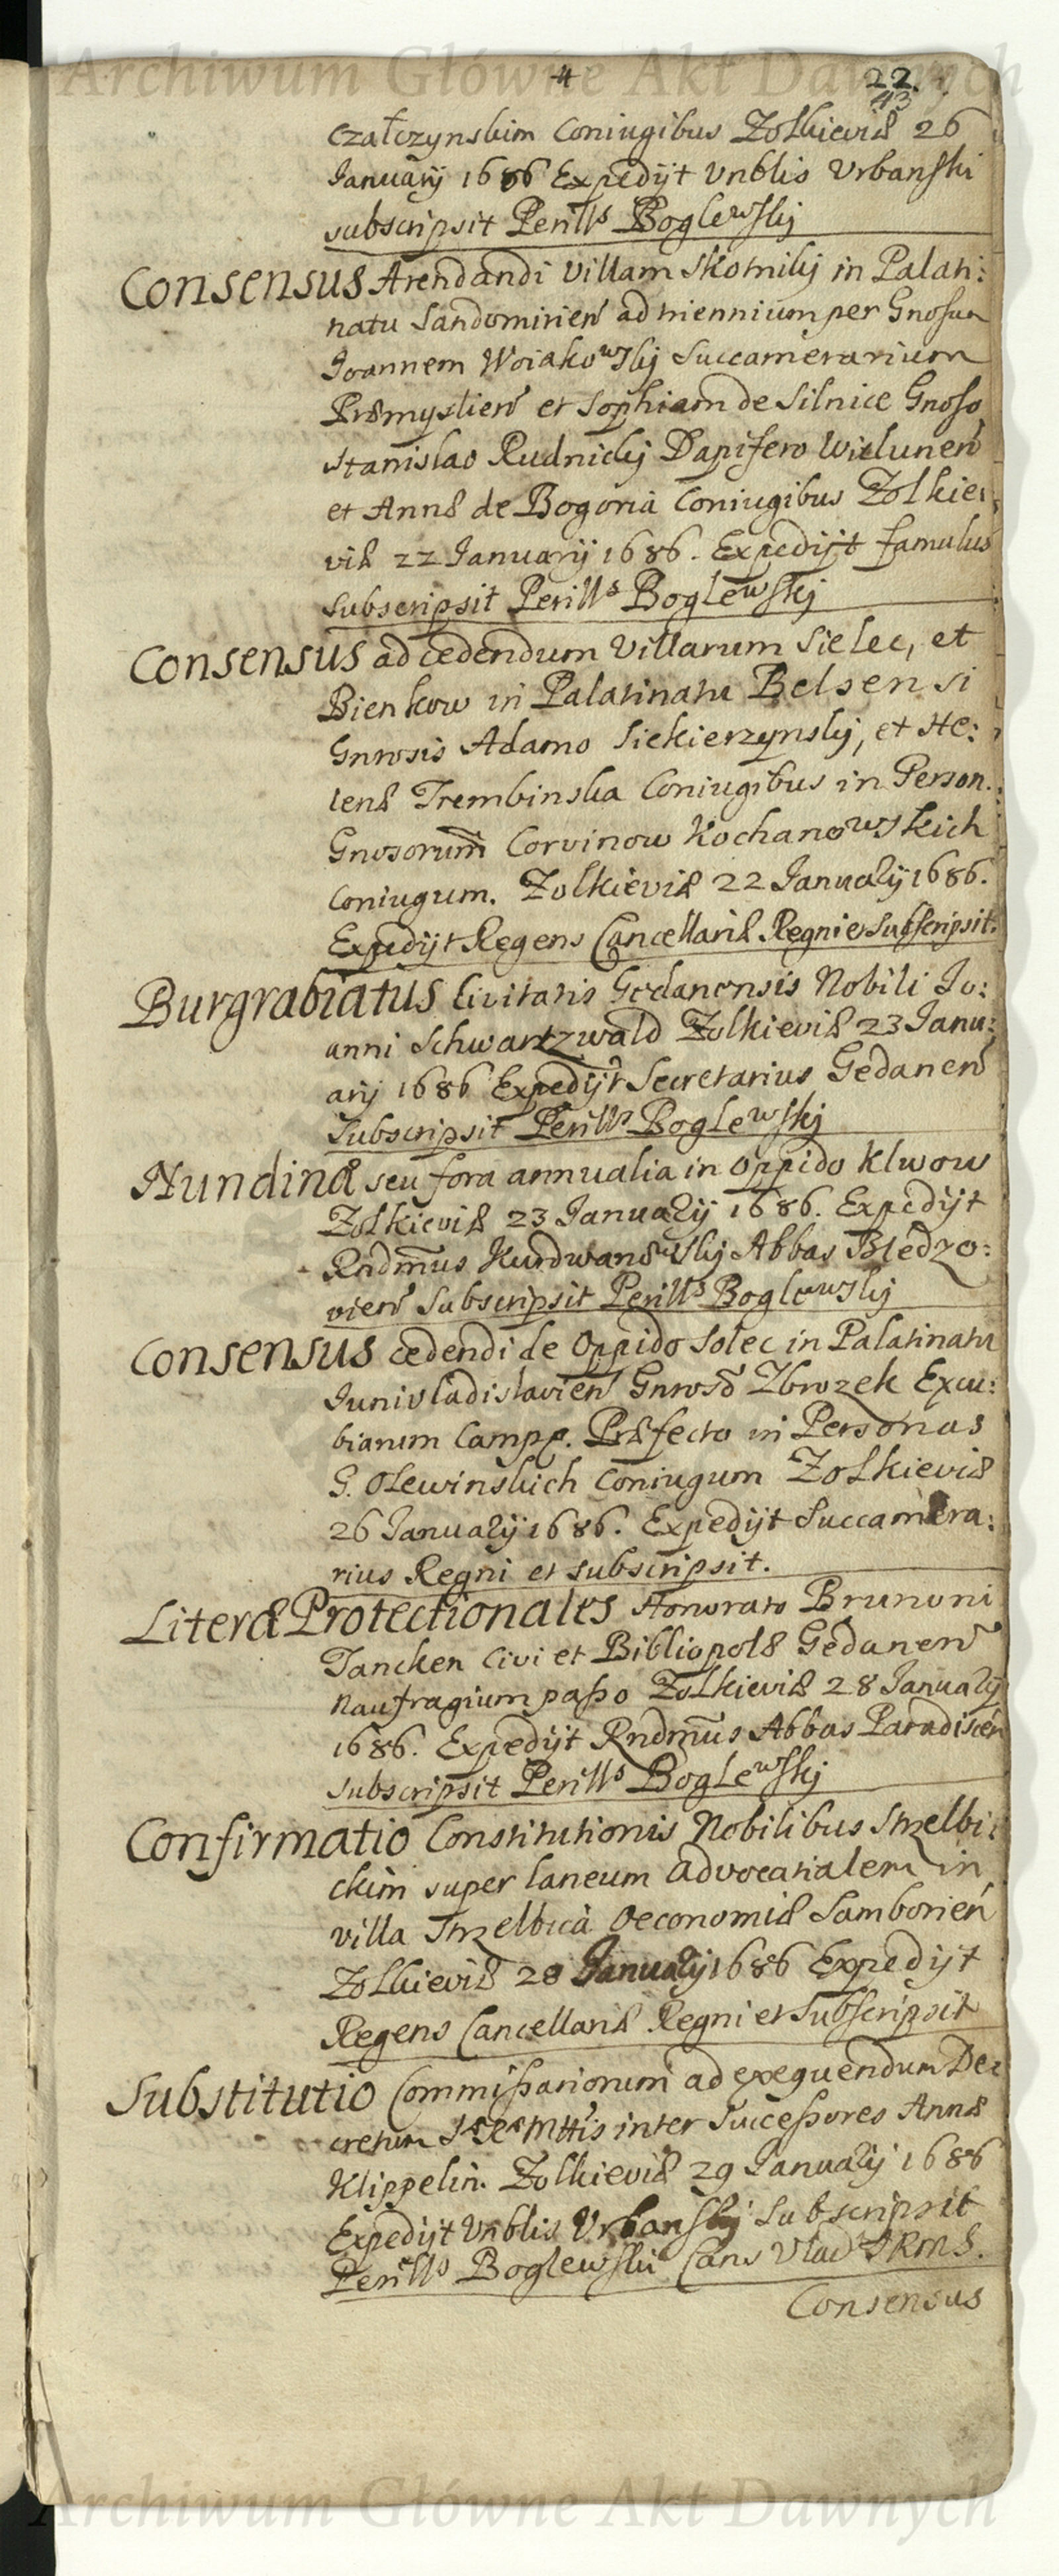 Archiwum Główne Akt Dawnych
4 22.
43
czałczynskim Coniugibus Zolkieviæ 26
Ianuarij 1686 Expedijt Vnblis Vrbanski
subscripsit Perills Boglewskj
Consensus Arendandi Villam Skotniky in Palati:
natu Sandomirien ad triennium per Gnosum
Joannem Woiakowskj Succamerarium
Præmyslien et Sophiam de Silnice Gnoso
Stanislao Rudnickj Dapifero Wielunen
et Annæ de Bogoria Coniugibus Zolkie:
viæ 22 Ianuarij 1686. Expedijt famulus
Subscripsit Perills Boglewskj
Consensus ad cedendum Villarum Sielec, et
Bienkow in Palatinatu Belsensi
Gnrosis Adamo Siekierzynskj, et He:
lenæ Trembinska Coniugibus in Person.
Gnosorum Corvinow Kochanowskich
Coniugum. Zolkieviæ 22 Ianuarij 1686.
Expedijt Regens Cancellariæ Regni et Subscripsit.
Burgrabiatus Civitatis Gedanensis Nobili Jo:
anni Schwartzwald Zolkieviæ 23 Janu:
arij 1686 Expedijt Secretarius Gedanen
Subscripsit Perills Boglewskj
Nundinæ seu fora annualia in Oppido Klwow
Zolkieviæ 23 Ianuarij 1686. Expedijt
Rndmus Kurdwanowskj Abbas Bledzo:
vien Subscripsit Perills Boglewskj
Consensus cedendi de Oppido Solec in Palatinatu
Junivladislavien Gnroso Zbrozek Excu:
biarum Campp. Præfecto in Personas
G. Olewinskich Coniugum Zolkieviæ
26 Ianuarij 1686. Expedijt Succamera:
rius Regni et subscripsit.
Literæ Protectionales Honorato Brunoni
Tancken Civi et Bibliopolæ Gedanen
Naufragium passo Zolkieviæ 28 Ianuarij
1686. Expedijt Rndmus Abbas Paradisien
subscripsit Perills Boglewskj
Confirmatio Constitutionis Nobilibus Strzelbi:
ckim super laneum advocatialem in
villa Strzelbica Oeconomiæ Samborien
Zolkieviæ 28 Ianuarij 1686 Expedijt
Regens Cancellariæ Regni et Subscripsit
Substitutio Commissariorum ad exequendum De:
cretum SRMttis inter Successores Annæ
Klippelin. Zolkieviæ 29 Ianuarij 1686
Expedijt Vnblis Vrbanskj Subscripsit
Perills Boglewski Cans Vlad SRMS.
Consensus
Archiwum Główne Akt Dawnych